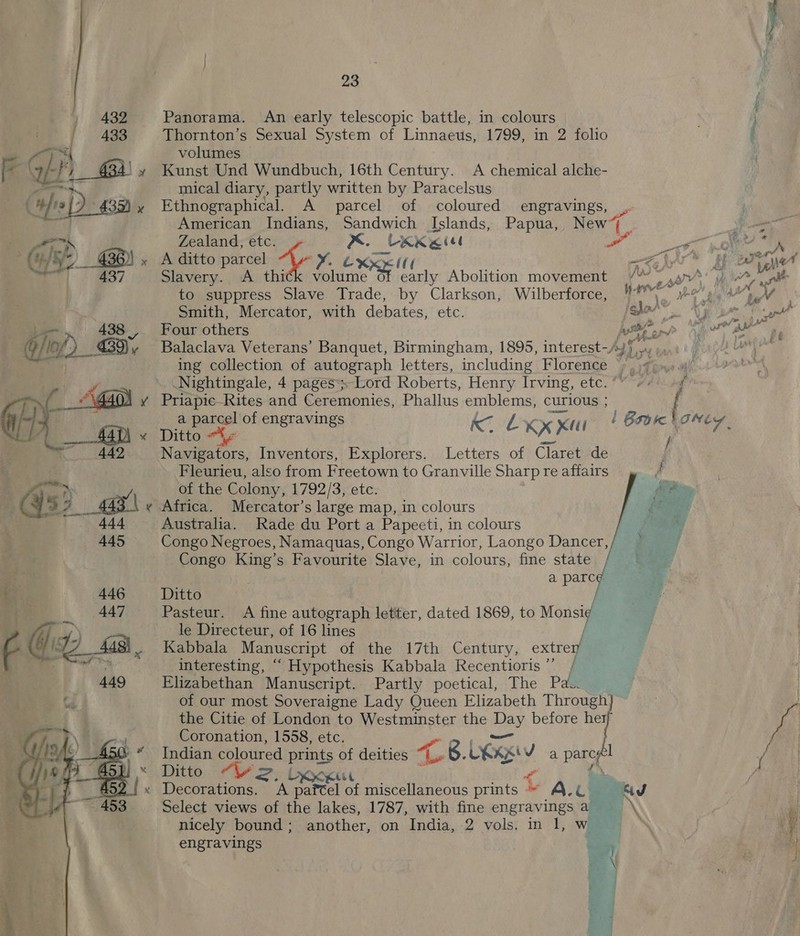 23
432 Panorama. An early telescopic battle, in colours
433 Thornton's Sexual System of Linnaeus, 1799, in 2 folio
volumes
434 Kunst Und Wundbuch, 16th Century. A chemical alche-
mical diary, partly written by Paracelsus
435 Ethnographical. A parcel of coloured engravings,
American Indians, Sandwich Islands, Papua, New
Zealand, etc.
436 A ditto parcel
437 Slavery. A thick volume of early Abolition movement
to suppress Slave Trade, by Clarkson, Wilberforce,
Smith, Mercator, with debates, etc.
438 Four others
439 Balaclava Veterans' Banquet, Birmingham, 1895, interest-
ing collection of autograph letters, including Florence
Nightingale, 4 pages; Lord Roberts, Henry Irving, etc.
440 Priapic Rites and Ceremonies, Phallus emblems, curious;
a parcel of engravings
Book only
441 Ditto
442 Navigators, Inventors, Explorers. Letters of Claret de
Fleurieu, also from Freetown to Granville Sharp re affairs
of the Colony, 1792/3, etc.
443 Africa. Mercator's large map, in colours
444 Australia. Rade du Port a Papeeti, in colours
445 Congo Negroes, Namaquas, Congo Warrior, Laongo Dancer,
Congo King's Favourite Slave, in colours, fine state
a parce
446 Ditto
447 Pasteur. A fine autograph letter, dated 1869, to Monsie
le Directeur, of 16 lines
448 Kabbala Manuscript of the 17th Century, extrem
interesting, "Hypothesis Kabbala Recentioris"
449 Elizabethan Manuscript. Partly poetical, The Pa
of our most Soveraigne Lady Queen Elizabeth Through
the Citie of London to Westminster the Day before her
Coronation, 1558, etc.
450 Indian coloured prints of deities a parcel
451 Ditto
452 Decorations. A parcel of miscellaneous prints
453 Select views of the lakes, 1787, with fine engravings a
nicely bound; another, on India, 2 vols. in 1, w
engravings